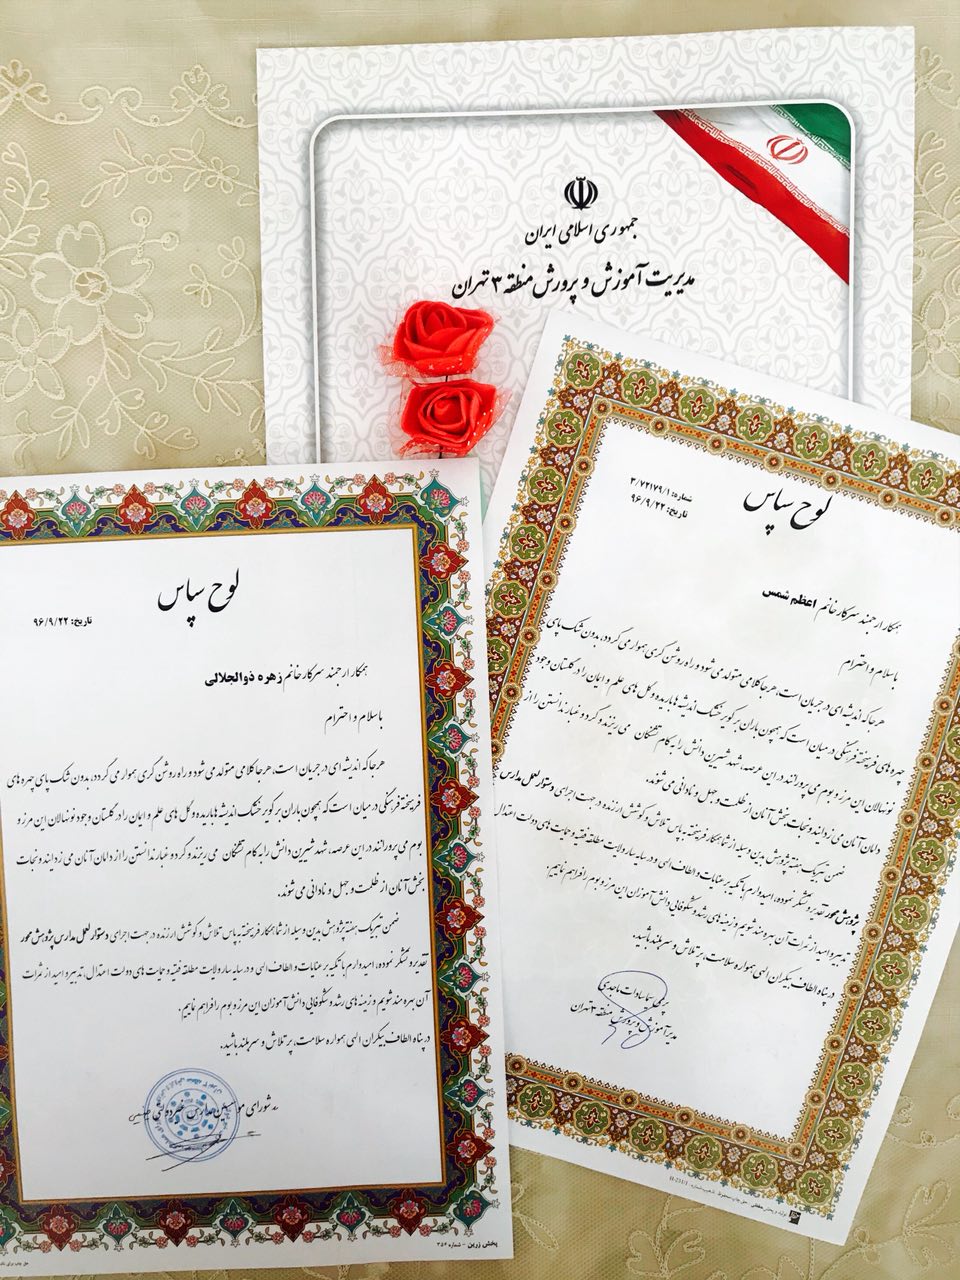 جمهوری اسلامی ایران
مدیریت آموزش و پرورش منطقه ۳ تهران
لوح سپاس
شماره: ۳/۷۲۱۷۹/۱
تاریخ: ۹۶/۹/۲۲
همکار ارجمند سرکار خانم اعظم شمس
با سلام و احترام
هر جا که اندیشه ای در جریان است، هر جا کلامی متولد می شود و راه روشن گری هموار می گردد، بدون شک پای
چهره های فرهیخته فرهنگی در میان است که همچون باران بر کویر خشک اندیشه ها باریده و گل های علم و ایمان را در گلستان وجود
نونهالان این مرز و بوم می پرورانند در این عرصه، شهد شیرین دانش را به کام تشنگان می ریزند و گرد و غبار ندانستن را از
دامان آنان می زدایند و نجات بخش آنان از ظلمت و جهل و نادانی می شوند.
ضمن تبریک هفته پژوهش بدین وسیله از شما همکار فرهیخته به پاس تلاش و کوشش ارزنده در جهت اجرای دستورالعمل مدارس
پژوهش محور تقدیر و تشکر نموده، امیدوارم با تکیه بر عنایات و الطاف الهی و در سایه سار ولایت مطلقه فقیه و حمایت های دولت اعتدال
تدبیر و امید از ثمرات آن بهره مند شویم و زمینه های رشد و شکوفایی دانش آموزان این مرز و بوم را فراهم نماییم.
در پناه الطاف بیکران الهی همواره سلامت، پر تلاش و سربلند باشید.
پری سیما سادات ماجدی
مدیر آموزش و پرورش منطقه ۳ تهران
لوح سپاس
تاریخ: ۹۶/۹/۲۲
همکار ارجمند سرکار خانم زهره ذوالجلالی
با سلام و احترام
هر جا که اندیشه ای در جریان است، هر جا کلامی متولد می شود و راه روشن گری هموار می گردد، بدون شک پای چهره های
فرهیخته فرهنگی در میان است که همچون باران بر کویر خشک اندیشه ها باریده و گل های علم و ایمان را در گلستان وجود نونهالان این مرز و
بوم می پرورانند در این عرصه، شهد شیرین دانش را به کام تشنگان می ریزند و گرد و غبار ندانستن را از دامان آنان می زدایند و نجات
بخش آنان از ظلمت و جهل و نادانی می شوند.
ضمن تبریک هفته پژوهش بدین وسیله از شما همکار فرهیخته به پاس تلاش و کوشش ارزنده در جهت اجرای دستورالعمل مدارس پژوهش محور
تقدیر و تشکر نموده، امیدوارم با تکیه بر عنایات و الطاف الهی و در سایه سار ولایت مطلقه فقیه و حمایت های دولت اعتدال، تدبیر و امید از ثمرات
آن بهره مند شویم و زمینه های رشد و شکوفایی دانش آموزان این مرز و بوم را فراهم نماییم.
در پناه الطاف بیکران الهی همواره سلامت، پر تلاش و سربلند باشید.
شورای موسسین مدارس
پخش زرین - شماره ۳۵۴